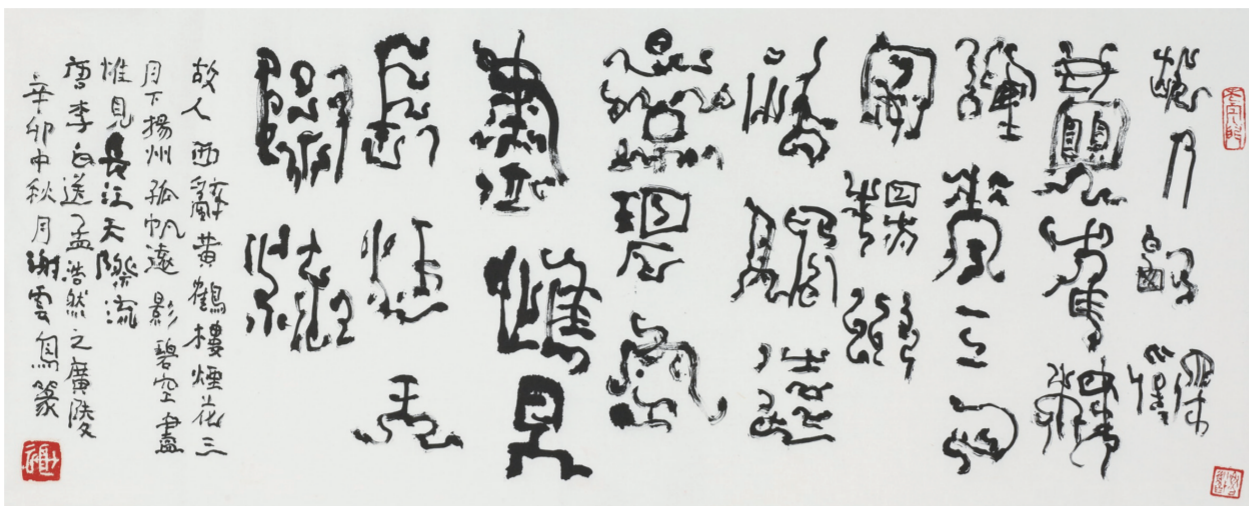 故人西辭
黃鶴樓
煙花三月
下揚州
孤帆遠
影碧空
盡惟見
長江天
際流
故人西辭黃鶴樓煙花三
月下揚州孤帆遠影碧空盡
惟見長江天際流
唐李白送孟浩然之廣陵
辛卯中秋月謝雲鳥篆